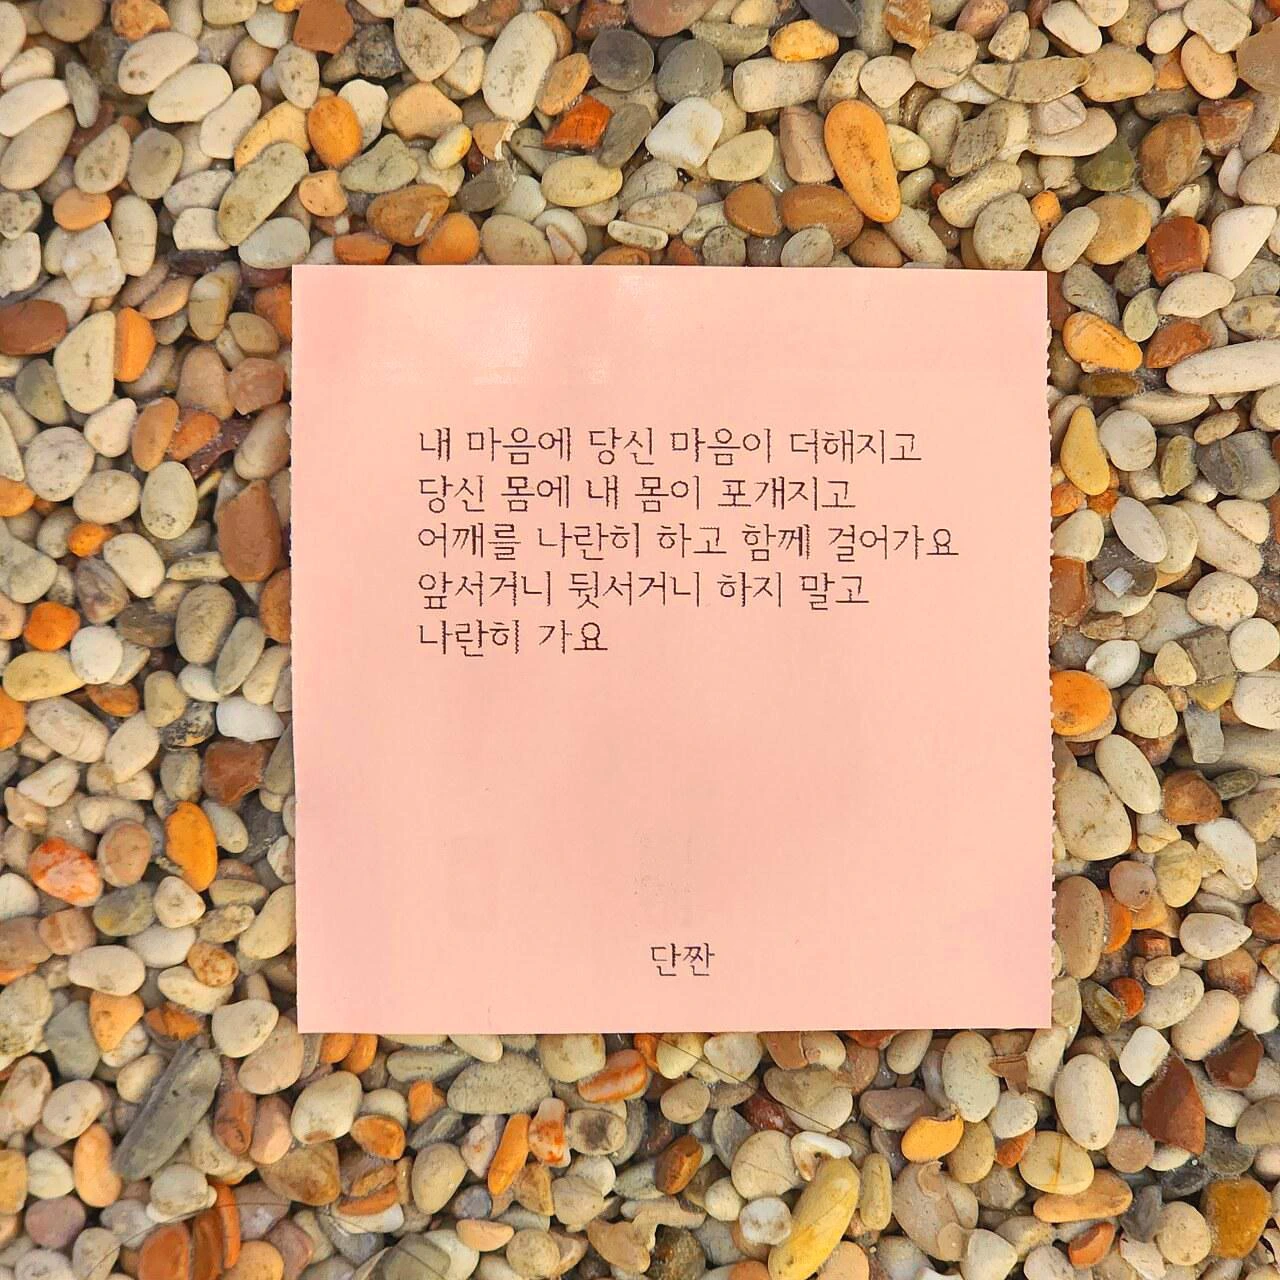 내 마음에 당신 마음이 더해지고
당신 몸에 내 몸이 포개지고
어깨를 나란히 하고 함께 걸어가요
앞서거니 뒷서거니 하지 말고
나란히 가요
단짠